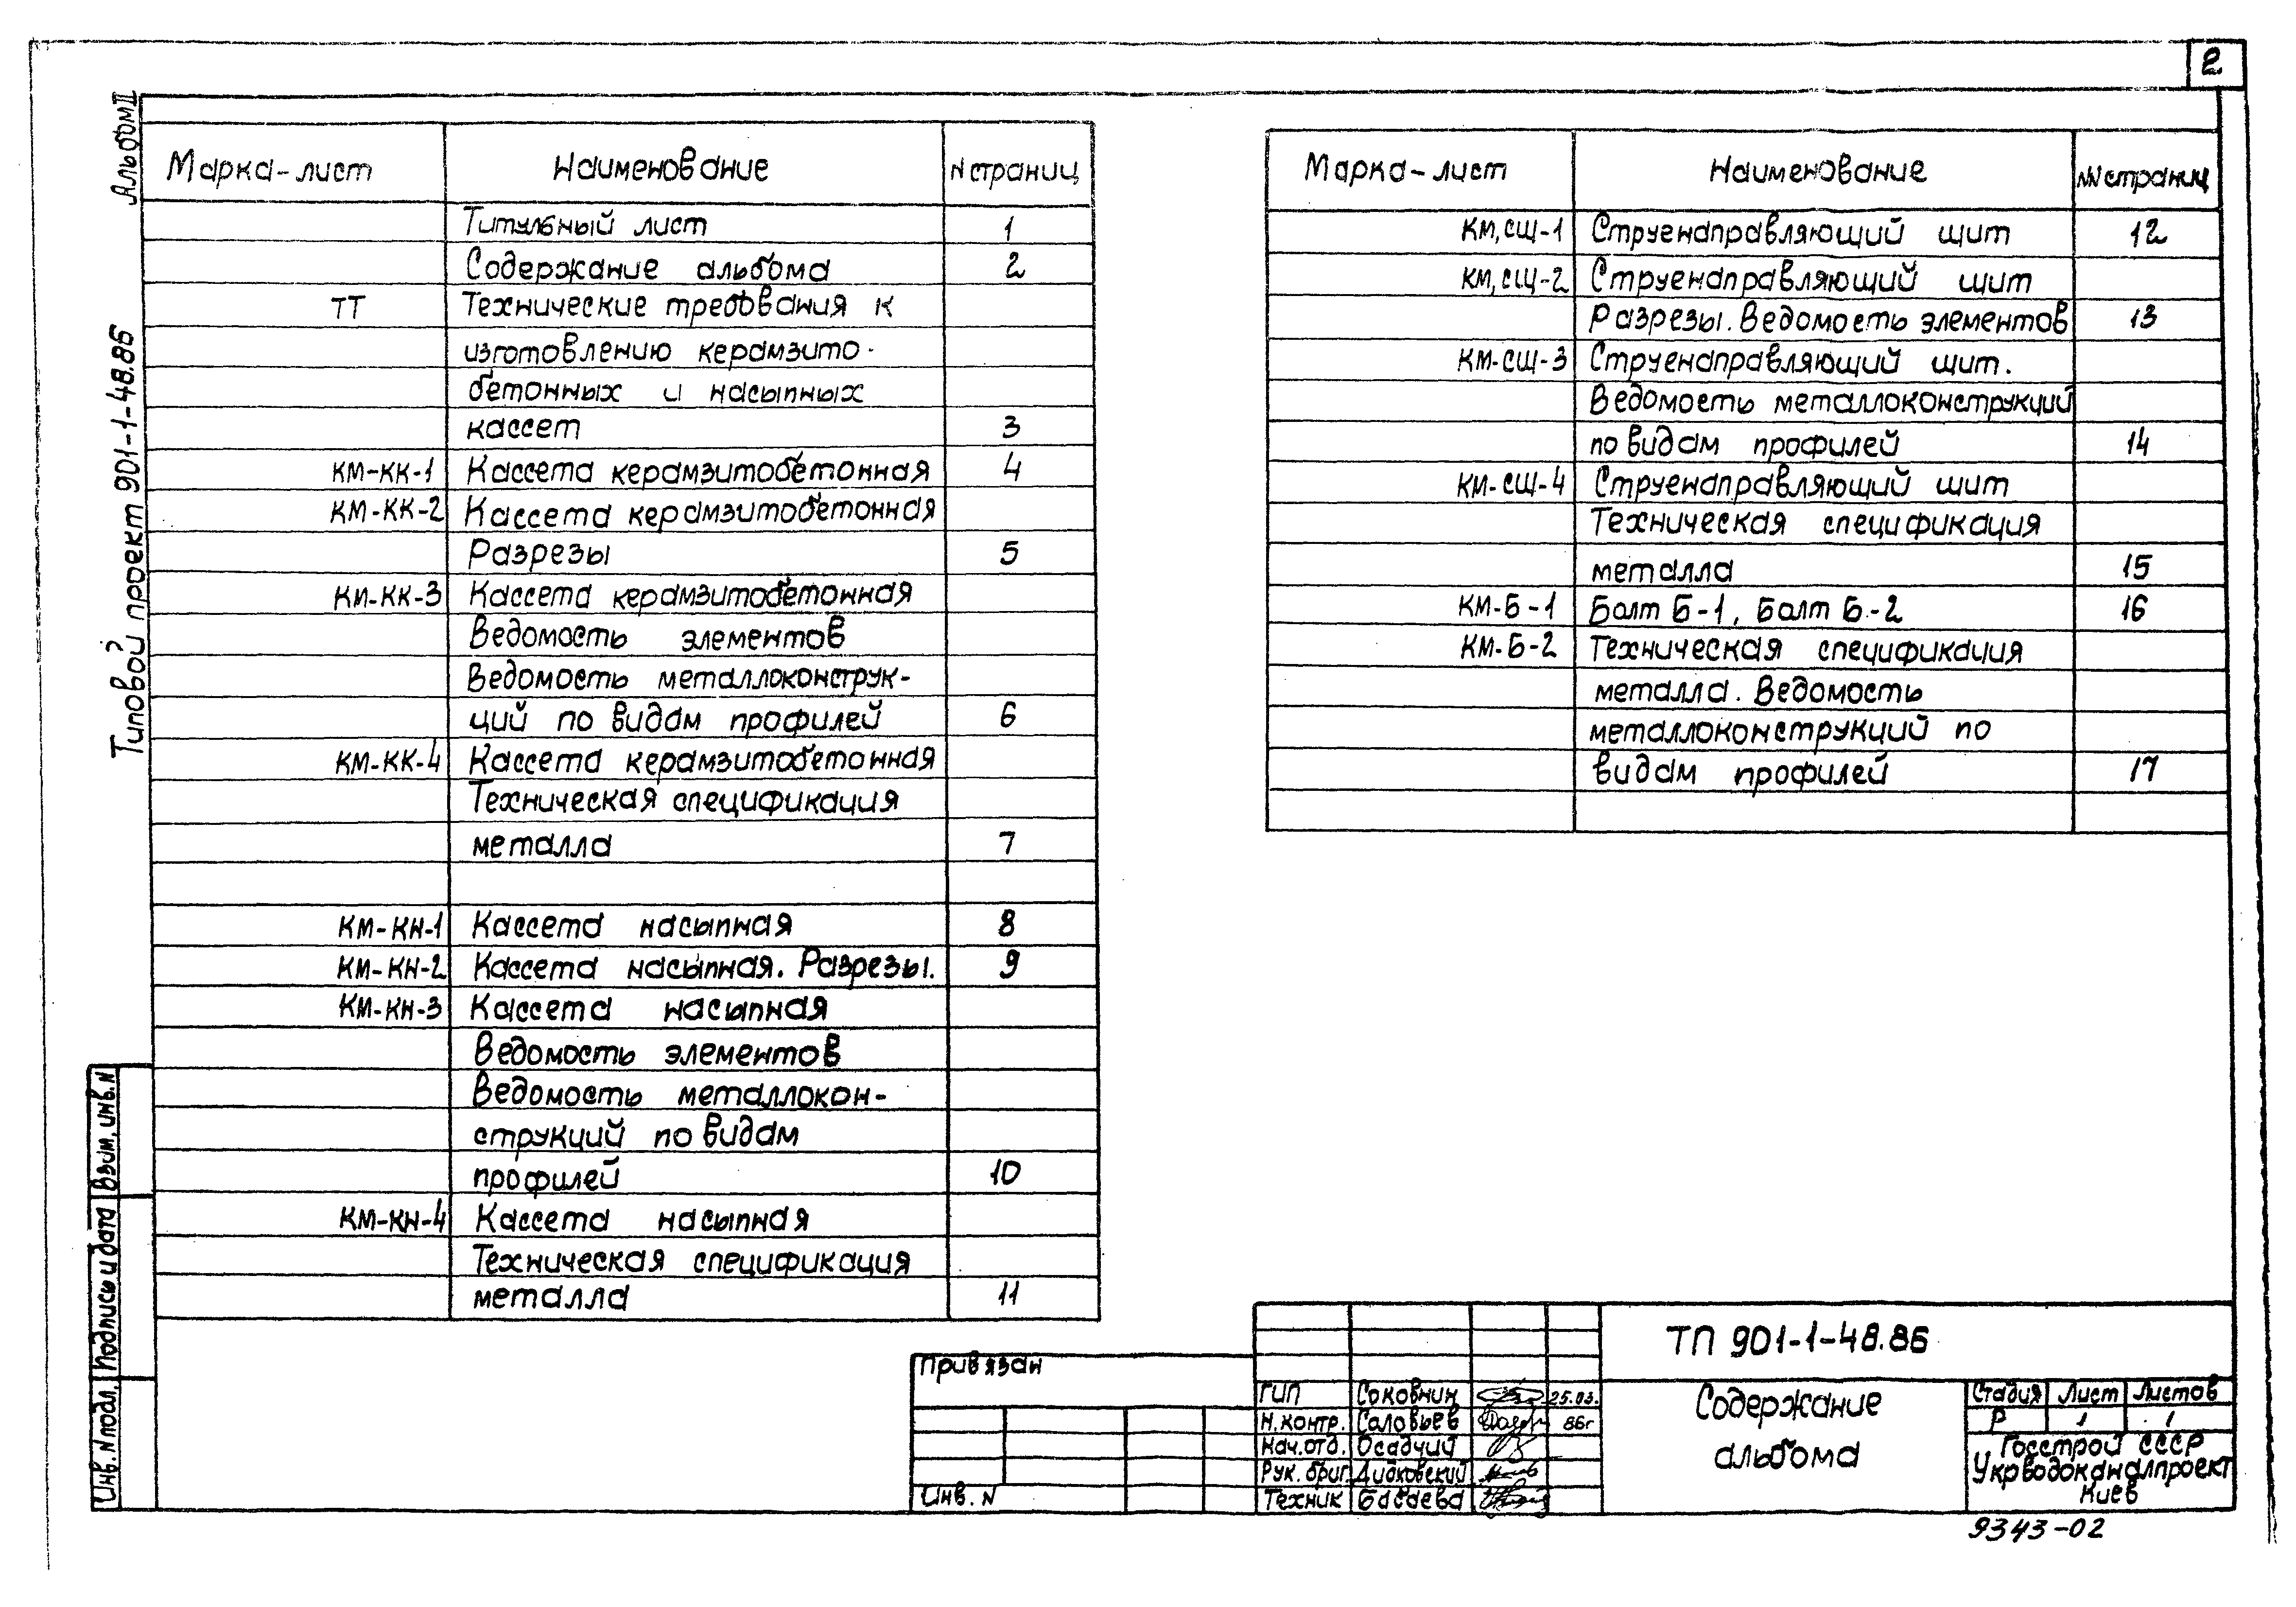 2
Альбом II
Типовой проект 901-1-48.86
Марка-лист Наименование N страниц
Титульный лист 1
Содержание альбома 2
ТТ Технические требования к
изготовлению керамзито-
бетонных и насыпных
кассет 3
КМ-КК-1 Кассета керамзитобетонная 4
КМ-КК-2 Кассета керамзитобетонная
Разрезы 5
КМ-КК-3 Кассета керамзитобетонная
Ведомость элементов
Ведомость металлоконструк-
ций по видам профилей 6
КМ-КК-4 Кассета керамзитобетонная
Техническая спецификация
металла 7
КМ-КН-1 Кассета насыпная 8
КМ-КН-2 Кассета насыпная. Разрезы. 9
КМ-КН-3 Кассета насыпная
Ведомость элементов
Ведомость металлокон-
струкций по видам
профилей 10
КМ-КН-4 Кассета насыпная
Техническая спецификация
металла 11
Марка-лист Наименование NN страниц
КМ,СЩ-1 Струенаправляющий щит 12
КМ,СЩ-2 Струенаправляющий щит
Разрезы. Ведомость элементов 13
КМ-СЩ-3 Струенаправляющий щит.
Ведомость металлоконструкций
по видам профилей 14
КМ-СЩ-4 Струенаправляющий щит
Техническая спецификация
металла 15
КМ-Б-1 Болт Б-1, Болт Б-2 16
КМ-Б-2 Техническая спецификация
металла. Ведомость
металлоконструкций по
видам профилей 17
Взим. инв. N
Подпись и дата
Инв. N подл.
Привязан
Инв. N
ГИП Соковнин 25.03.
Н.контр. Соловьев 86г
Нач.отд. Осадчий
Рук. бриг. Дидковский
Техник Бабаева
ТП 901-1-48.86
Содержание
альбома
Стадия Лист Листов
Р 1 1
Госстрой СССР
Укрводоканалпроект
Киев
9343-02